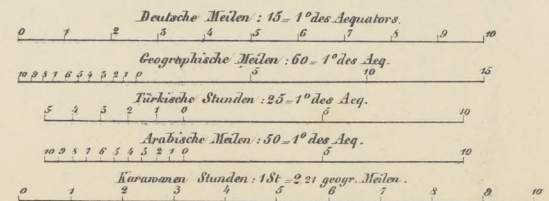 Deutsche Meilen : 15 = 1° des Aequators.
0 1 2 3 4 5 6 7 8 9 10
Geographische Meilen : 60 = 1° des Aeq.
10 9 8 7 6 5 4 3 2 1 0 5 10 15
Türkische Stunden : 25 = 1° des Aeq.
5 4 3 2 1 0 5 10
Arabische Meilen : 50 = 1° des Aeq.
10 9 8 7 6 5 4 3 2 1 0 5 10
Karawanen Stunden : 1 St = 2,21 geogr. Meilen.
0 1 2 3 4 5 6 7 8 9 10